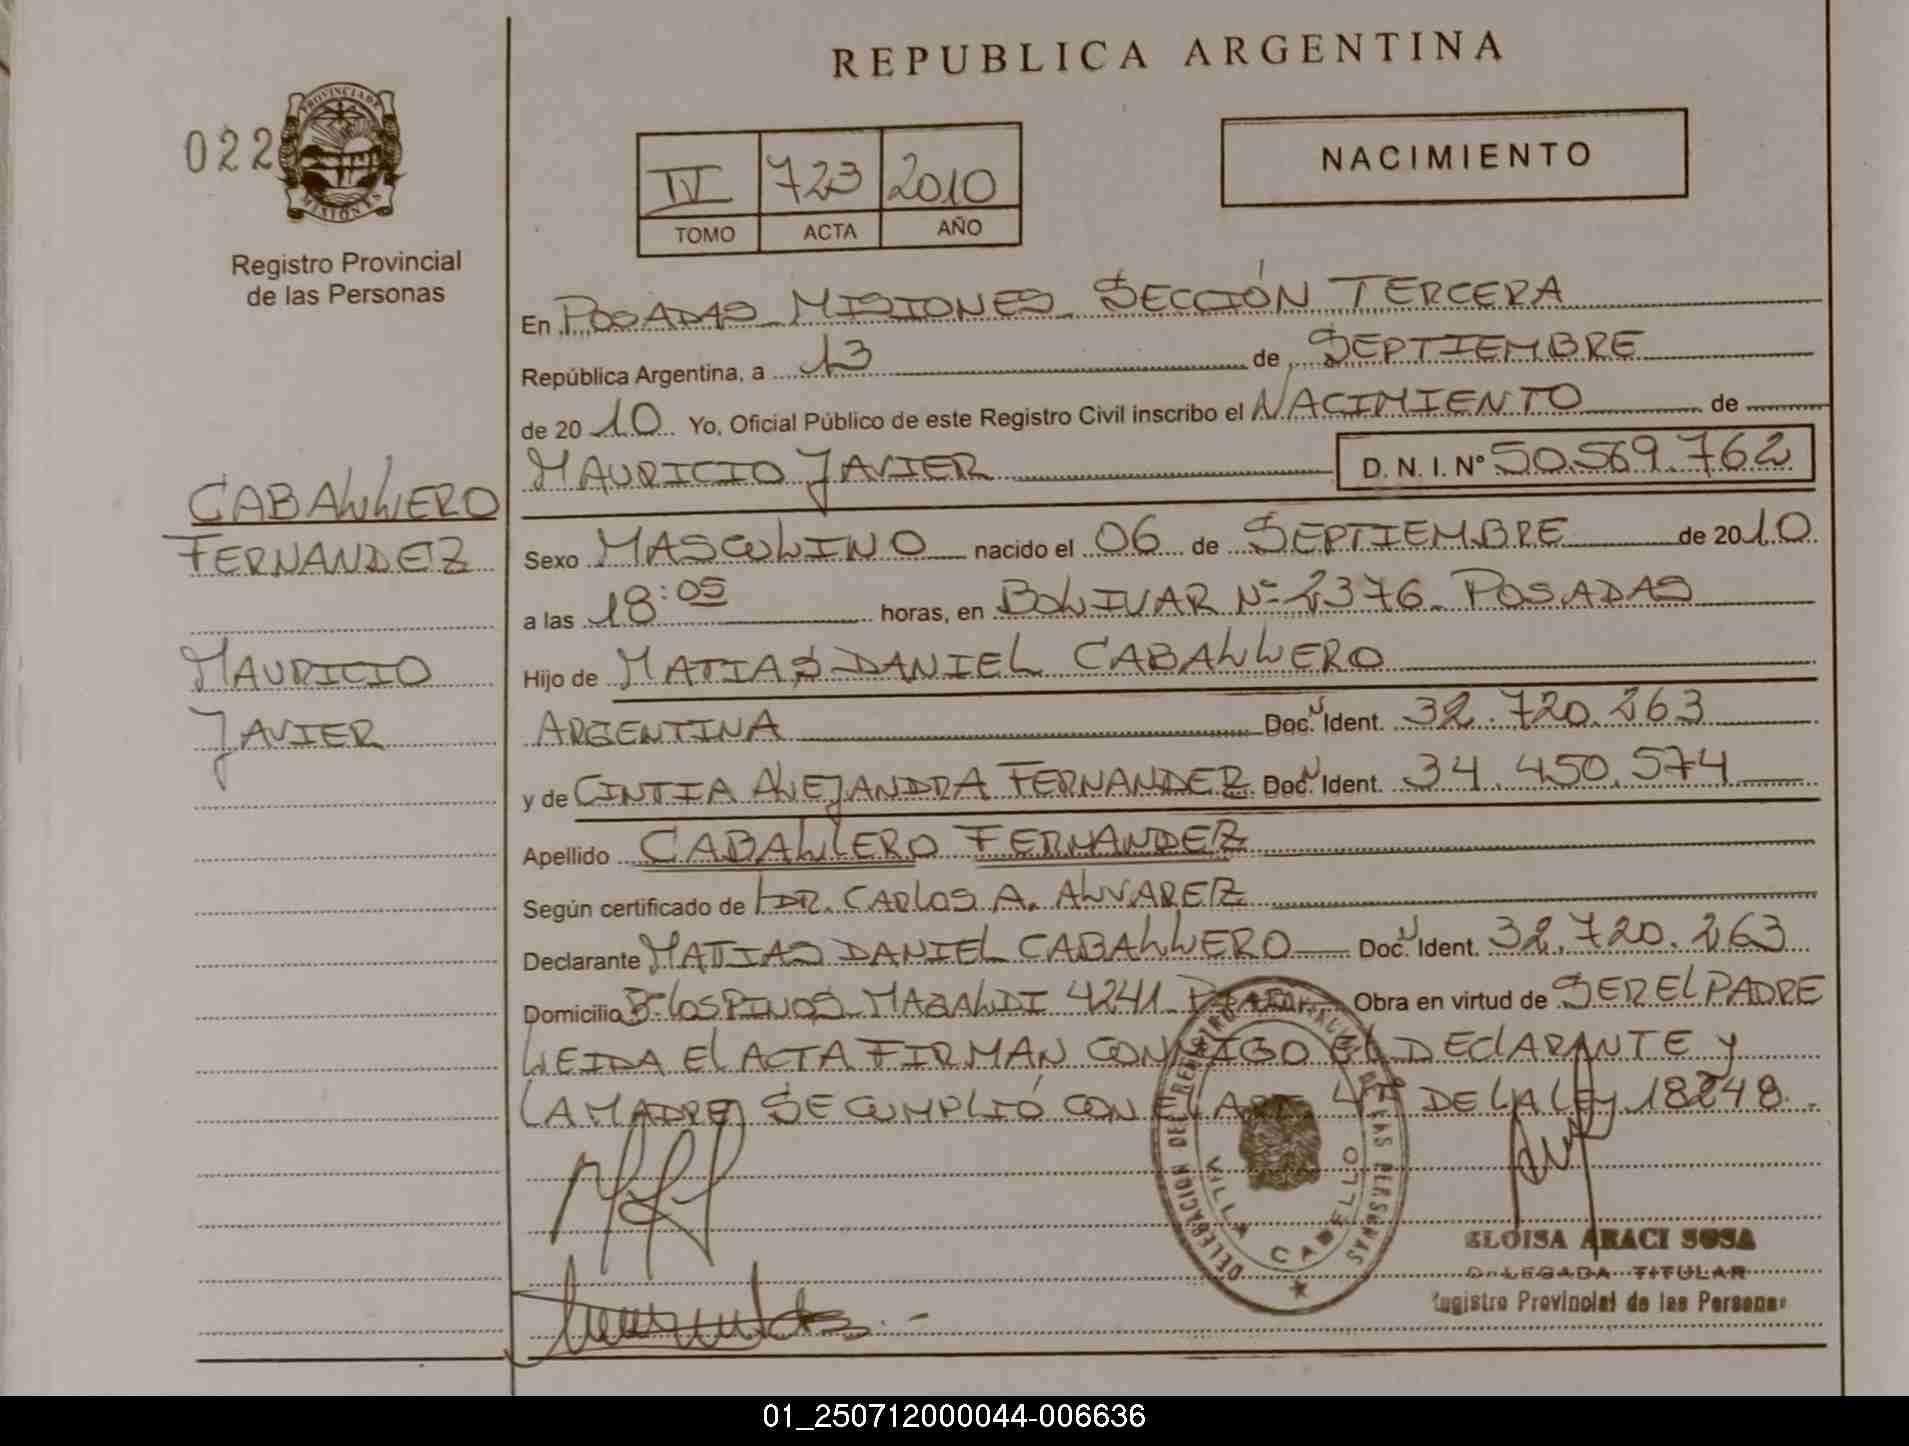 REPUBLICA ARGENTINA
022
PROVINCIA DE
MISIONES
Registro Provincial
de las Personas
IV 723 2010
TOMO ACTA AÑO
NACIMIENTO
En POSADAS MISIONES SECCIÓN TERCERA
República Argentina, a 13 de SEPTIEMBRE
de 2010 Yo, Oficial Público de este Registro Civil inscribo el NACIMIENTO de
MAURICIO JAVIER D. N. I. Nº 50.569.762
CABALLERO
FERNANDEZ
MAURICIO
JAVIER
Sexo MASCULINO nacido el 06 de SEPTIEMBRE de 2010
a las 18:05 horas, en BOLIVAR Nº 2376 POSADAS
Hijo de MATIAS DANIEL CABALLERO
ARGENTINA Doc. Ident. 32.720.263
y de CINTIA ALEJANDRA FERNANDEZ Doc. Ident. 34.450.574
Apellido CABALLERO FERNANDEZ
Según certificado de DR. CARLOS A. ALVAREZ
Declarante MATIAS DANIEL CABALLERO Doc. Ident. 32.720.263
Domicilio Bº LOS PINOS 4241 Obra en virtud de SER EL PADRE
LEIDA EL ACTA FIRMAN CONMIGO EL DECLARANTE Y
LA MADRE SE CUMPLIÓ CON EL ART. DE LA LEY 18248.
DELEGACION DEL REGISTRO DE LAS PERSONAS
VILLA CABELLO
ELOISA ARACI SOSA
DELEGADA TITULAR
Registro Provincial de las Personas
01_250712000044-006636